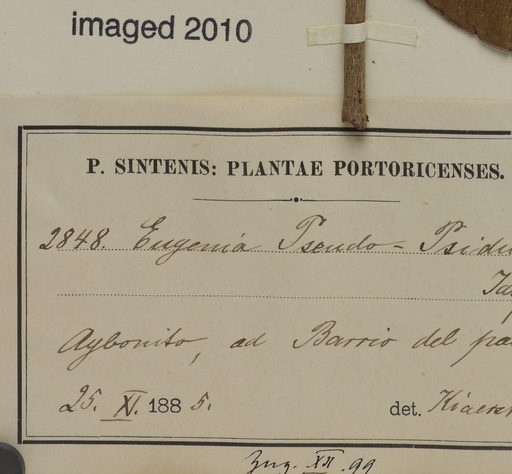 imaged 2010
P. SINTENIS: PLANTAE PORTORICENSES.
2848. Eugenia Pseudo-Psidiu
Aybonito, ad Barrio del pa
25. XI. 1885. det. Kiaersk
Zug. XII. 99